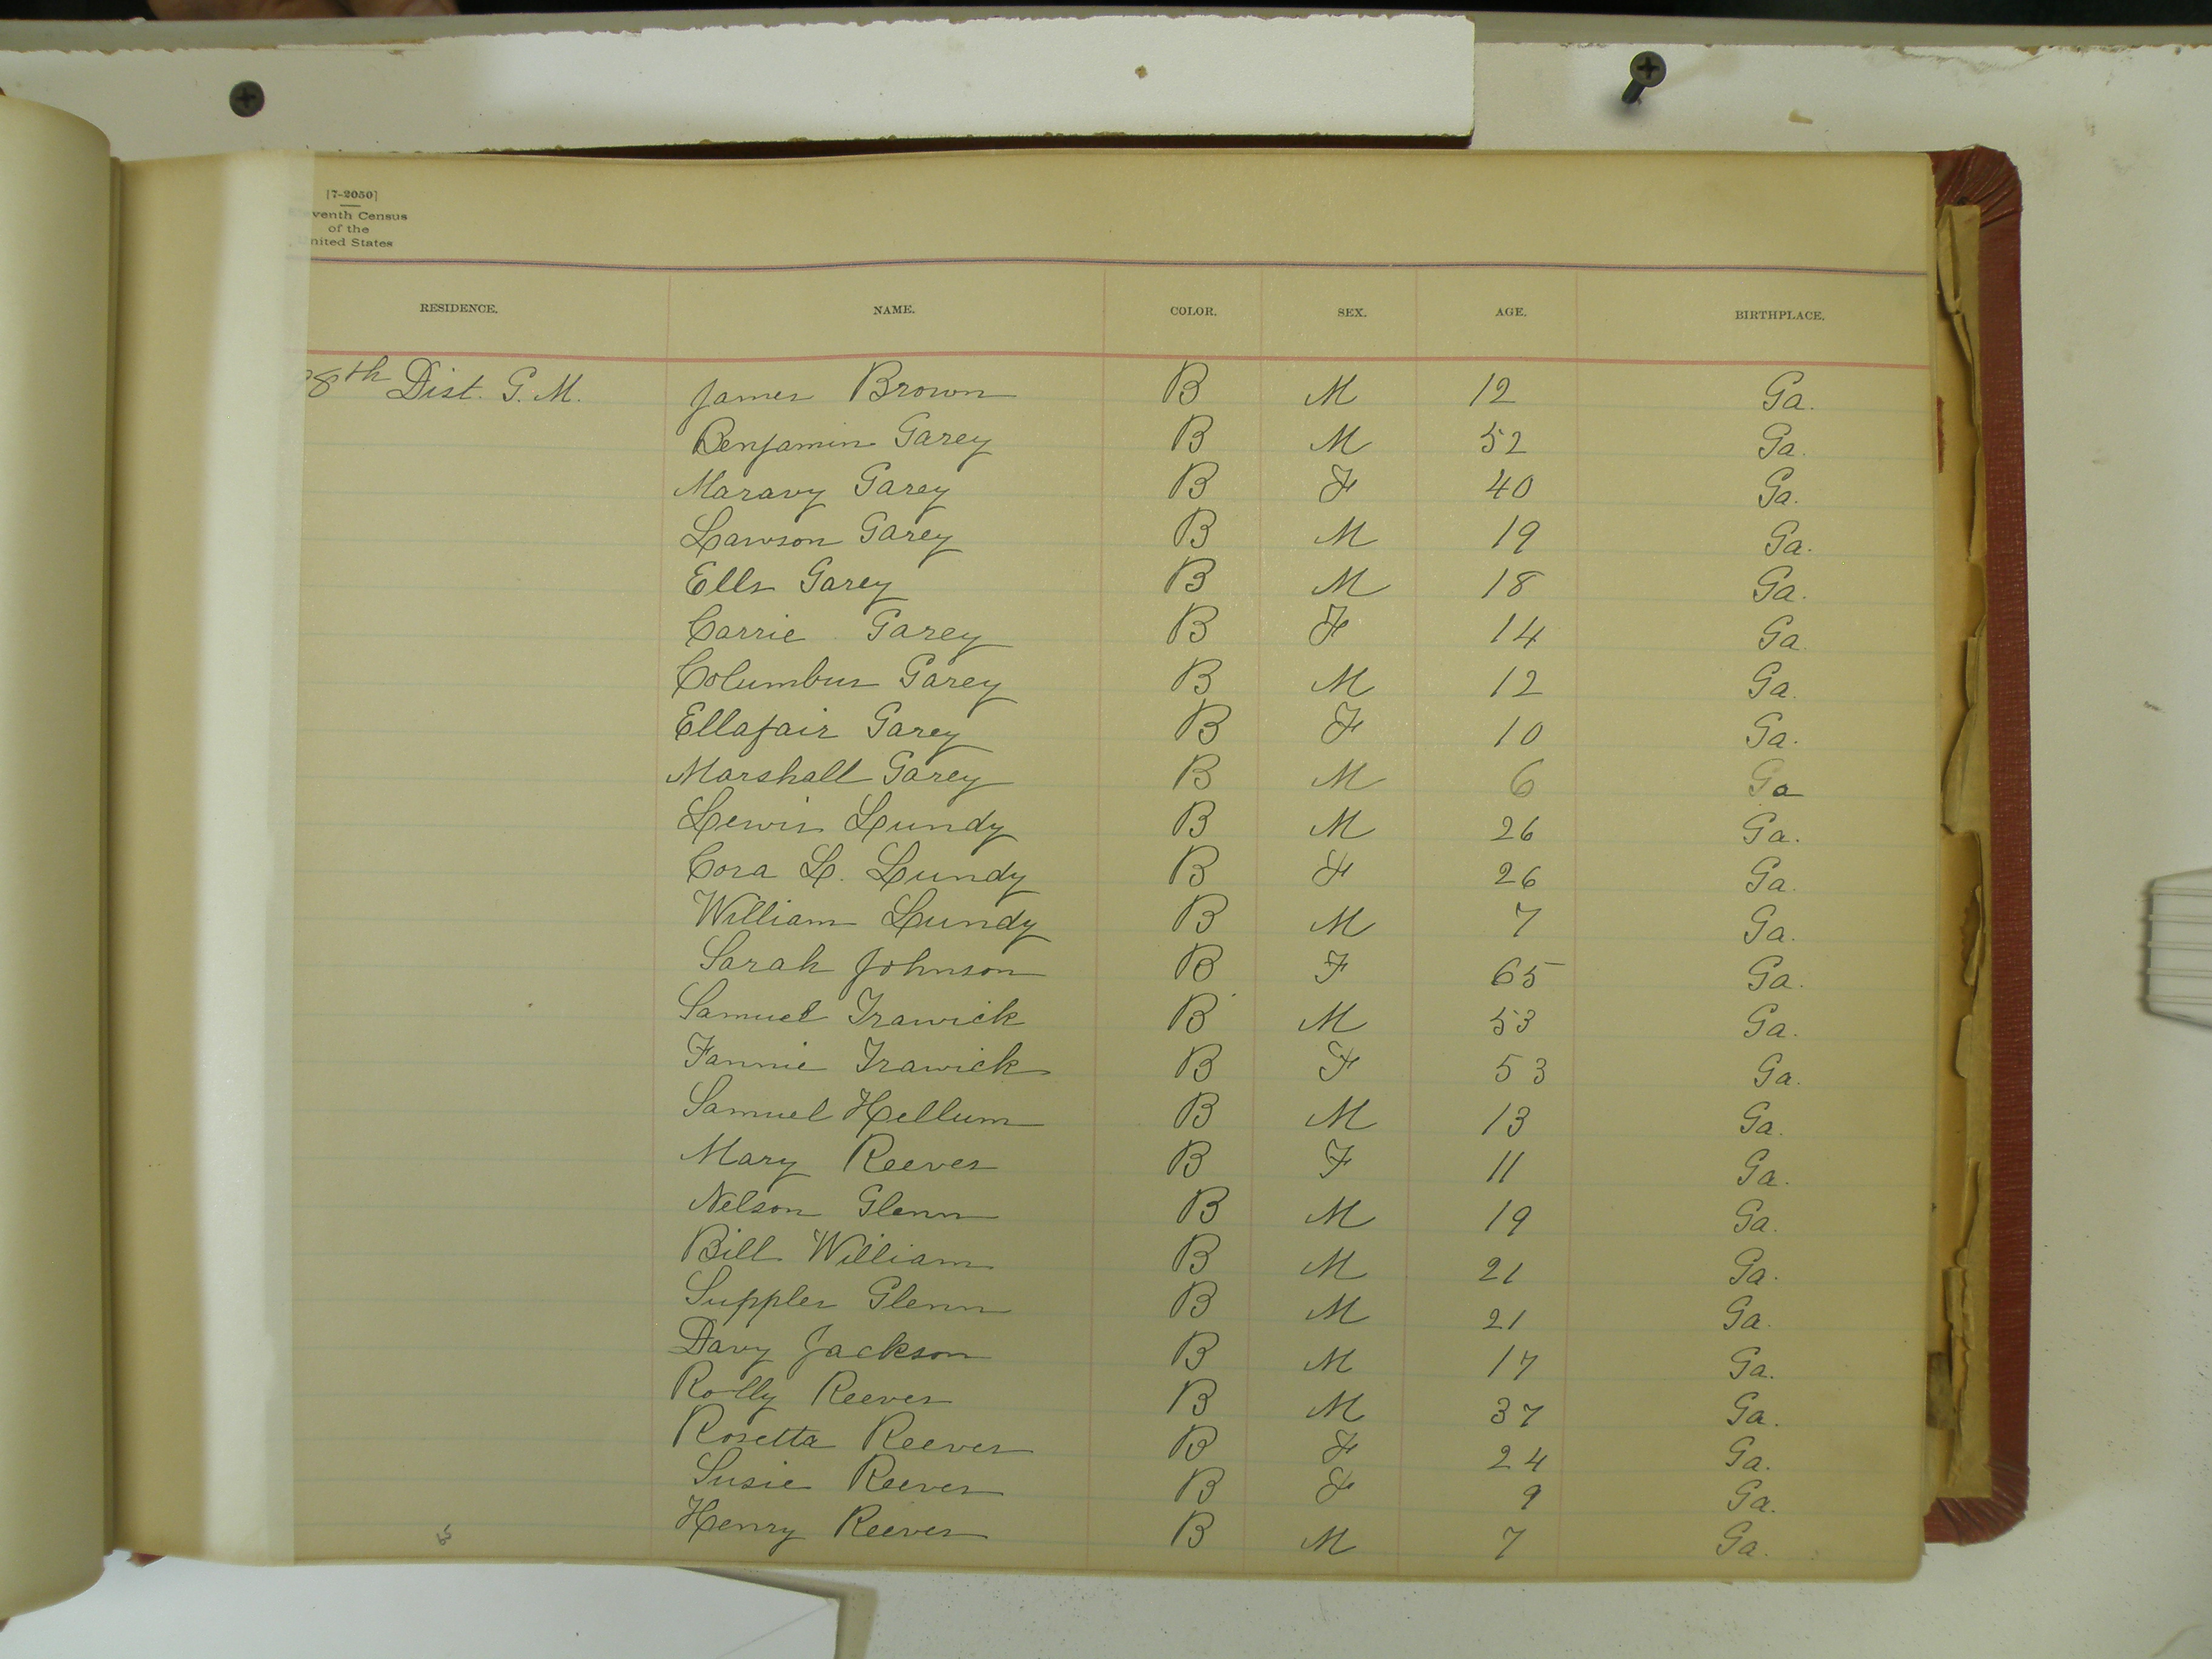 [7-2050]
venth Census
of the
nited States
RESIDENCE. NAME. COLOR. SEX. AGE. BIRTHPLACE.
8th Dist. G. M. James Brown B M 12 Ga.
Benjamin Garey B M 52 Ga.
Maravy Garey B F 40 Ga.
Lawson Garey B M 19 Ga.
Ells Garey B M 18 Ga.
Carrie Garey B F 14 Ga.
Columbus Garey B M 12 Ga.
Ellafair Garey B F 10 Ga.
Marshall Garey B M 6 Ga
Lewis Lundy B M 26 Ga.
Cora L. Lundy B F 26 Ga.
William Lundy B M 7 Ga.
Sarah Johnson B F 65 Ga.
Samuel Trawick B M 53 Ga.
Fannie Trawick B F 53 Ga.
Samuel Hellum B M 13 Ga.
Mary Reeves B F 11 Ga.
Nelson Glenn B M 19 Ga.
Bill William B M 21 Ga.
Suppler Glenn B M 21 Ga.
Davy Jackson B M 17 Ga.
Rolly Reeves B M 37 Ga.
Rosetta Reeves B F 24 Ga.
Susie Reeves B F 9 Ga.
Henry Reeves B M 7 Ga.